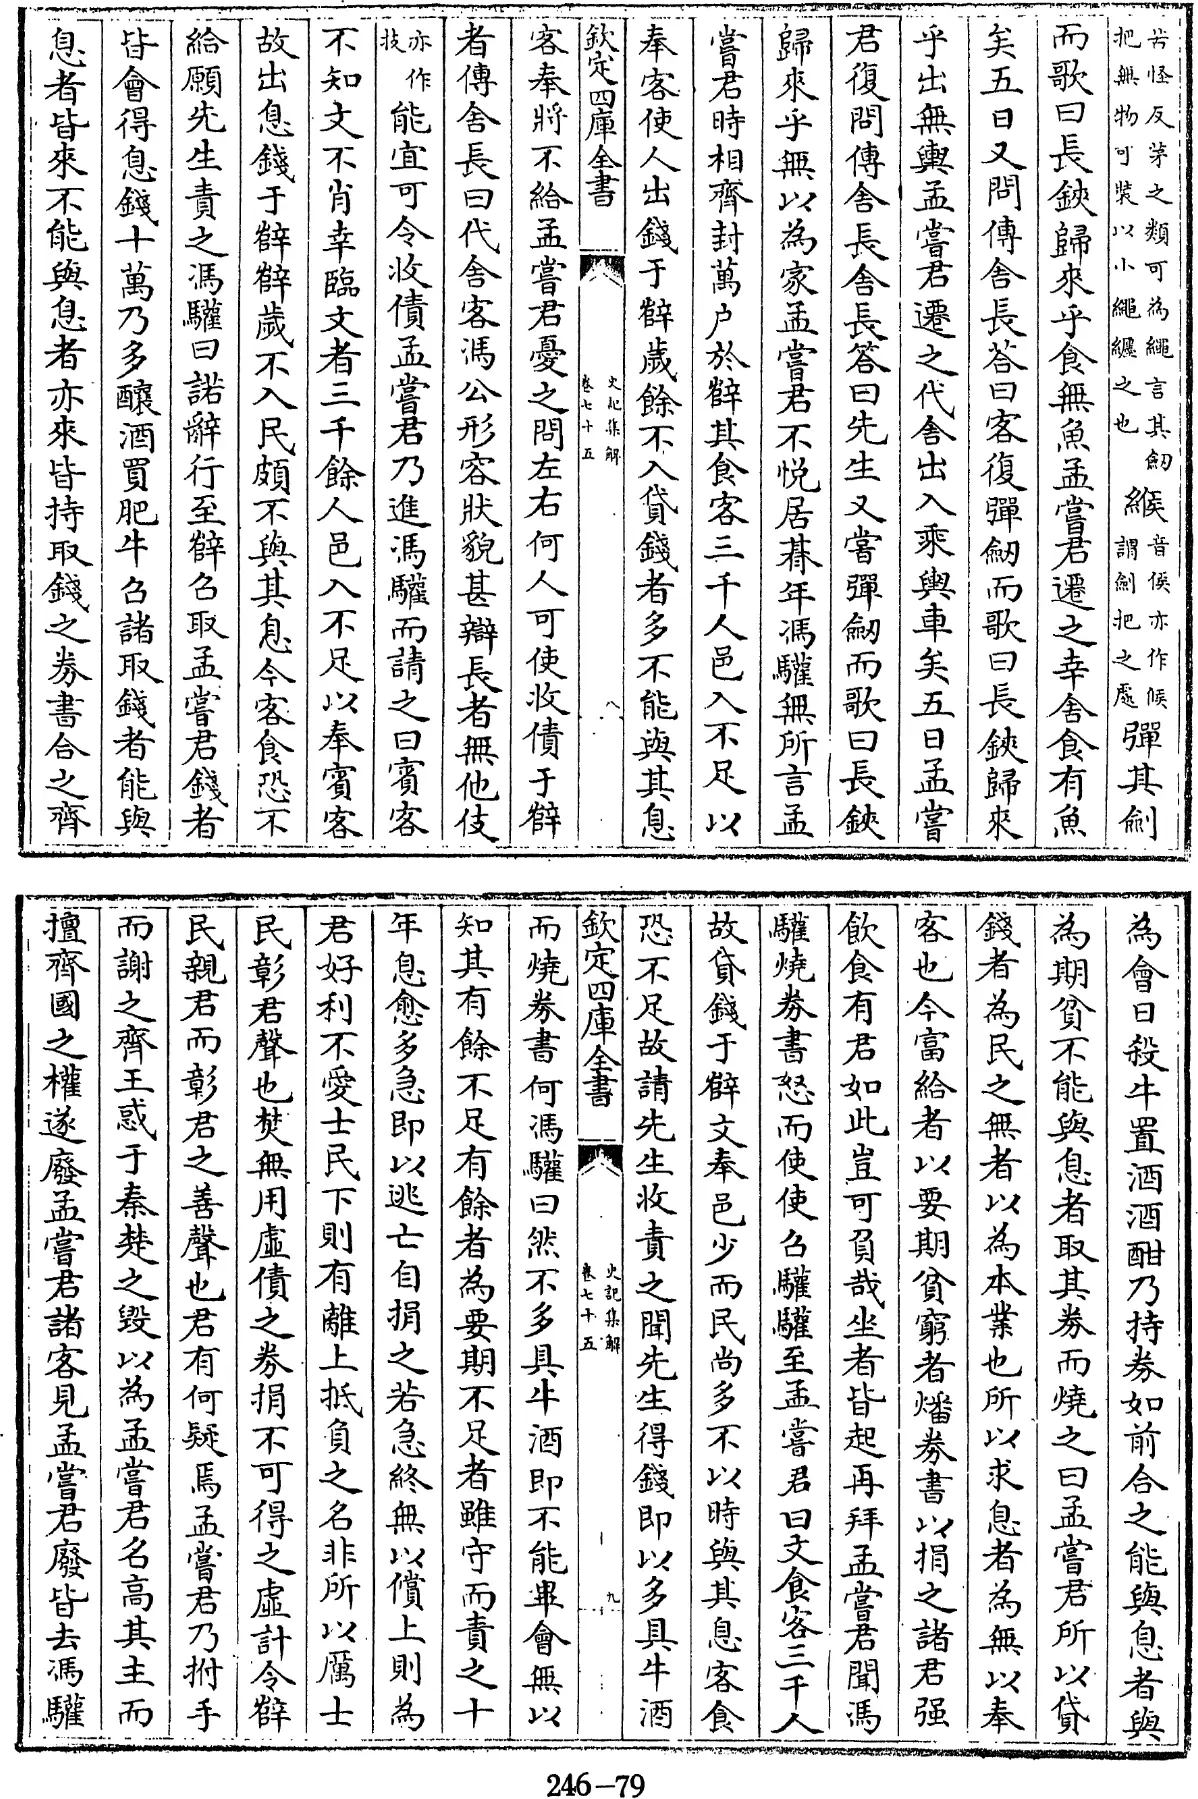 苦怪反茅之類可為繩言其劒把無物可裝以小繩纏之也緱音侯亦作候謂劒把之處彈其劒
而歌曰長鋏歸來乎食無魚孟嘗君遷之幸舍食有魚
矣五日又問傳舍長舍長答曰客復彈劒而歌曰長鋏歸來
乎出無輿孟嘗君遷之代舍出入乘輿車矣五日孟嘗
君復問傳舍長舍長答曰先生又嘗彈劒而歌曰長鋏
歸來乎無以為家孟嘗君不悅居朞年馮驩無所言孟
嘗君時相齊封萬戶於薛其食客三千人邑入不足以
奉客使人出錢于薛歲餘不入貸錢者多不能與其息
欽定四庫全書
史記集解
卷七十五
八
客奉將不給孟嘗君憂之問左右何人可使收債于薛
者傳舍長曰代舍客馮公形容狀貌甚辯長者無他伎
亦作技能宜可令收債孟嘗君乃進馮驩而請之曰賓客
不知文不肖幸臨文者三千餘人邑入不足以奉賓客
故出息錢于薛薛歲不入民頗不與其息今客食恐不
給願先生責之馮驩曰諾辭行至薛召取孟嘗君錢者
皆會得息錢十萬乃多釀酒買肥牛召諸取錢者能與
息者皆來不能與息者亦來皆持取錢之券書合之齊
為會日殺牛置酒酒酣乃持券如前合之能與息者與
為期貧不能與息者取其券而燒之曰孟嘗君所以貸
錢者為民之無者以為本業也所以求息者為無以奉
客也今富給者以要期貧窮者燔券書以捐之諸君强
飲食有君如此豈可負哉坐者皆起再拜孟嘗君聞馮
驩燒券書怒而使使召驩驩至孟嘗君曰文食客三千人
故貸錢于薛文奉邑少而民尚多不以時與其息客食
恐不足故請先生收責之聞先生得錢即以多具牛酒
欽定四庫全書
史記集解
卷七十五
九
而燒券書何馮驩曰然不多具牛酒即不能畢會無以
知其有餘不足有餘者為要期不足者雖守而責之十
年息愈多急即以逃亡自捐之若急終無以償上則為
君好利不愛士民下則有離上抵負之名非所以厲士
民彰君聲也焚無用虛債之券捐不可得之虛計令薛
民親君而彰君之善聲也君有何疑焉孟嘗君乃拊手
而謝之齊王惑于秦楚之毀以為孟嘗君名高其主而
擅齊國之權遂廢孟嘗君諸客見孟嘗君廢皆去馮驩
246-79